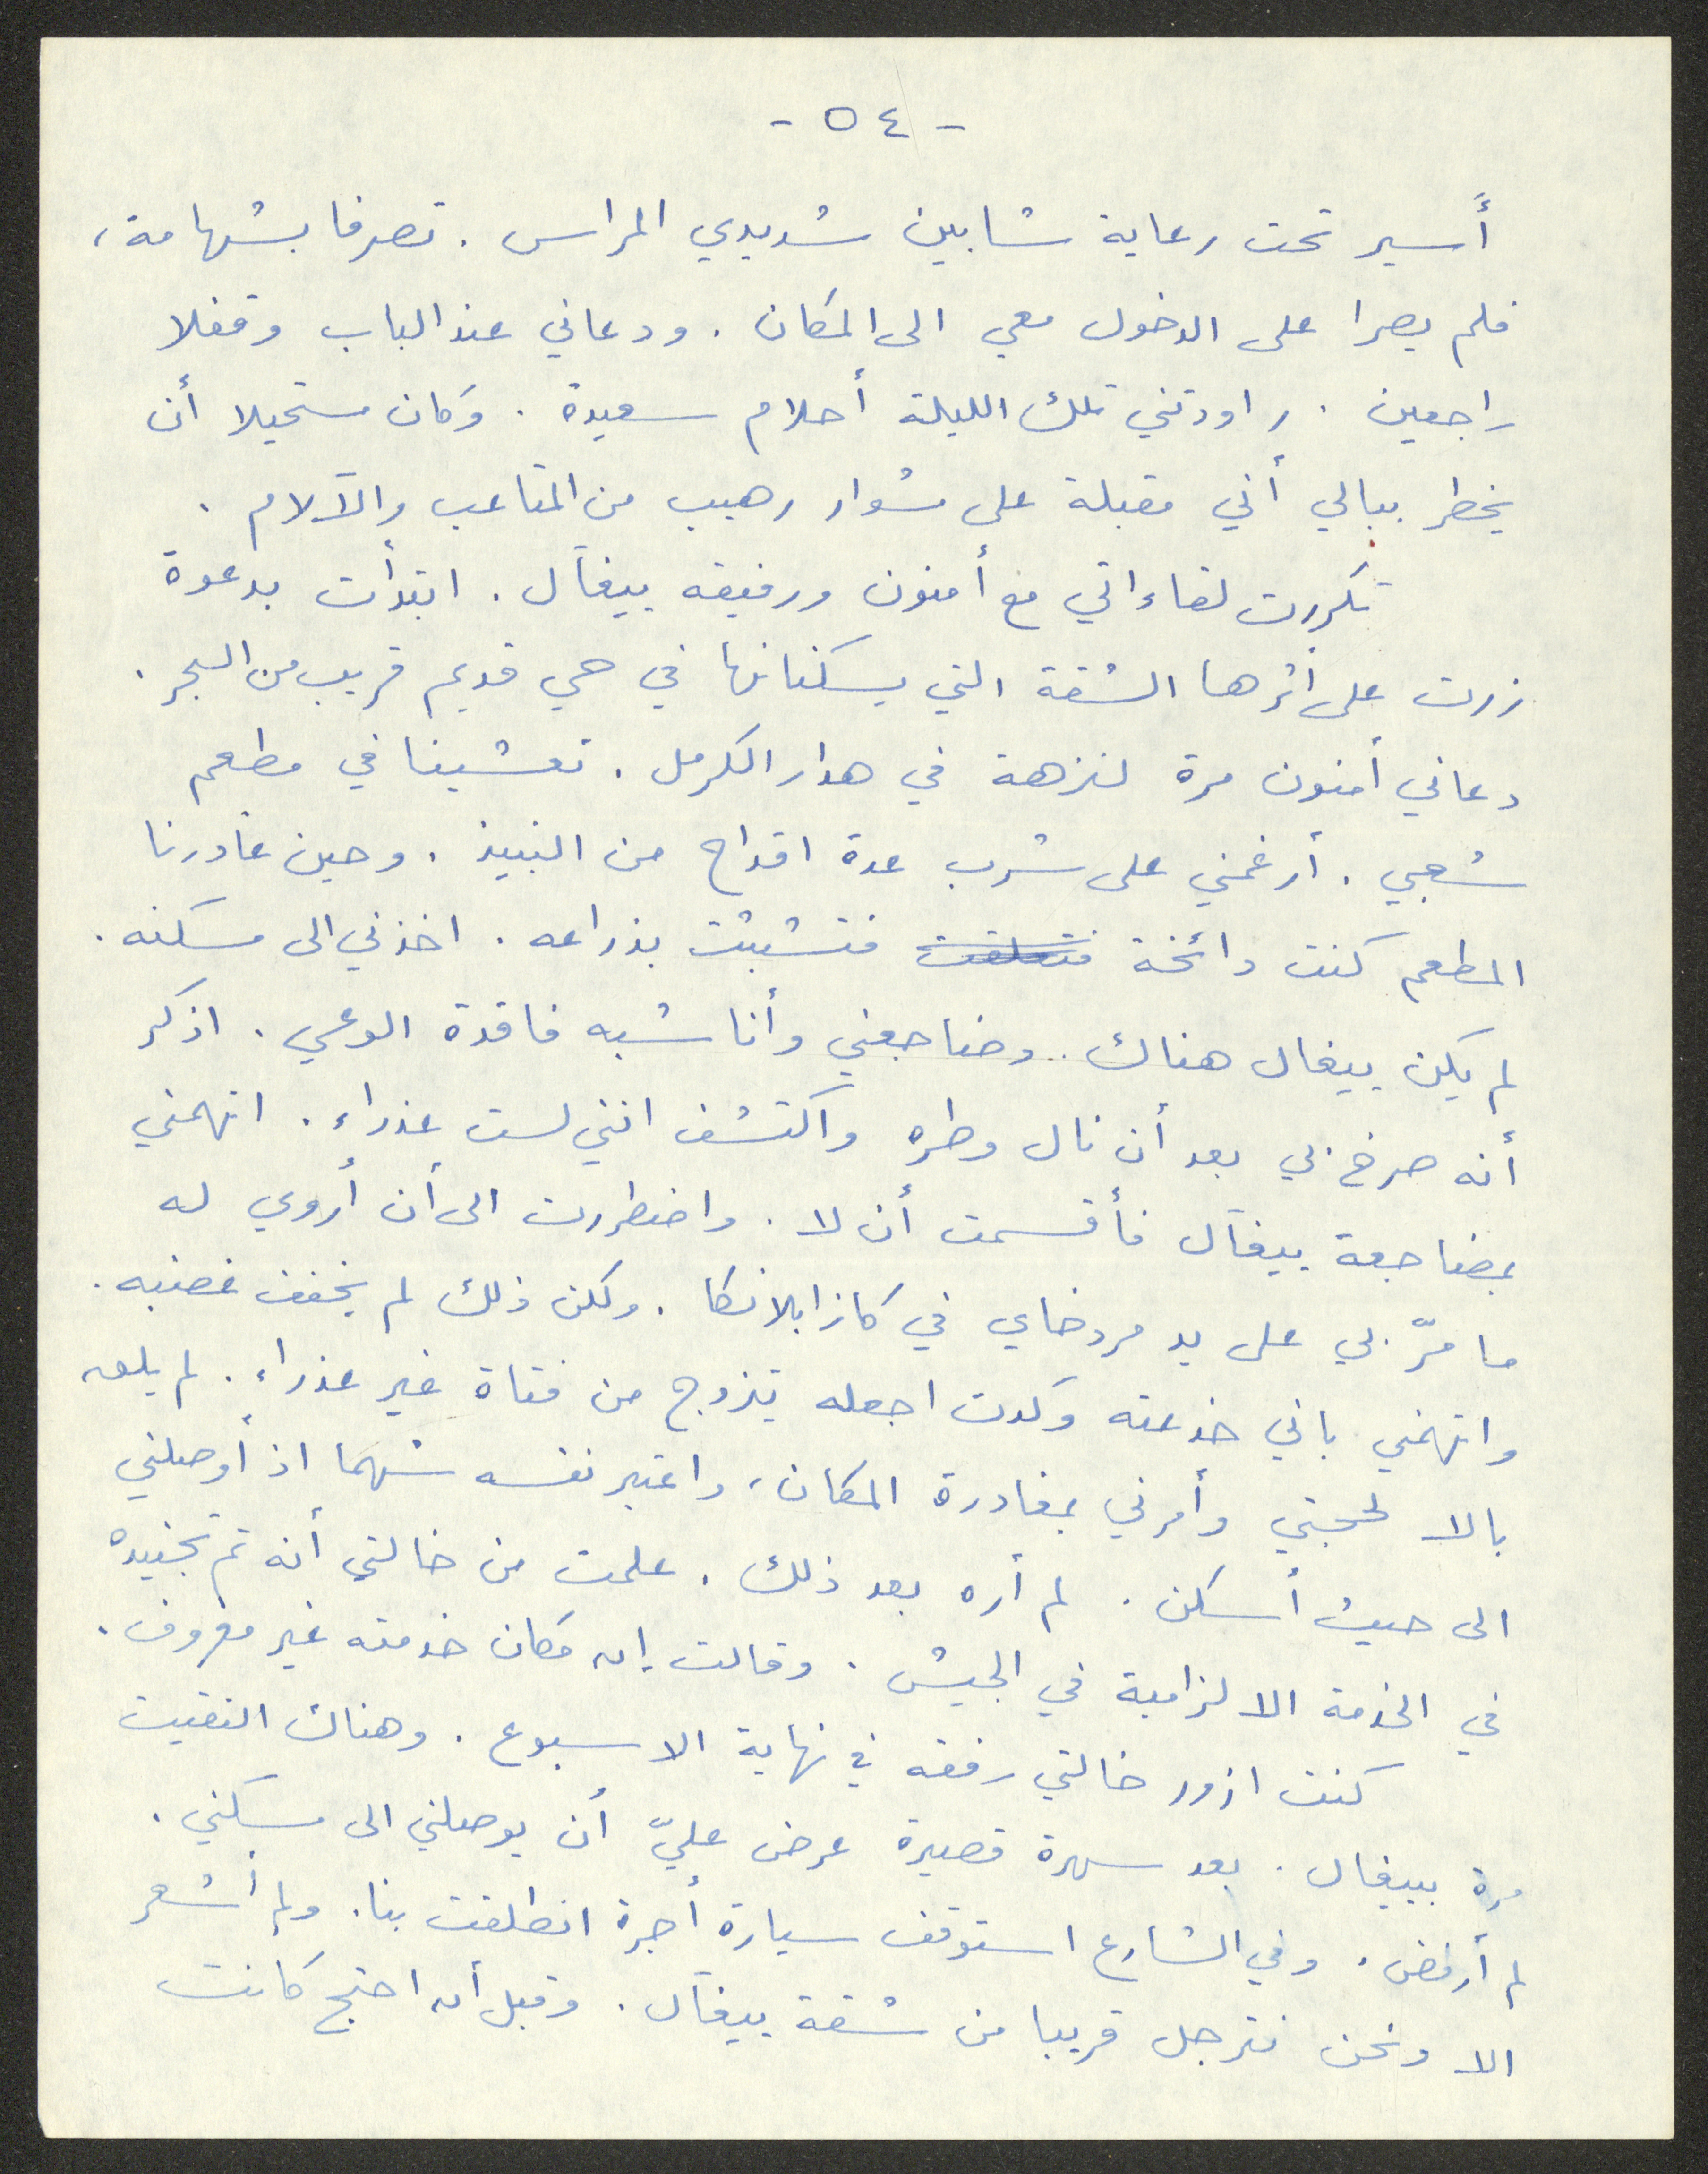 - ٥٤ -
أسير تحت رعاية شابين شديدي المراس . تصرفا بشهامة ،
فلم يصرا على الدخول معي الى المكان . ودعاني عند الباب وقفلا
راجعين . راودتني تلك الليلة أحلام سعيدة . وكان مستحيلا أن
يخطر ببالي أني مقبلة على مشوار رهيب من المتاعب والآلام .
تكررت لقاءاتي مع أمنون ورفيقه بيغآل . ابتدأت بدعوة
زرت على أثرها الشقة التي يسكنانها في حي قديم قريب من البحر .
دعاني أمنون مرة لنزهة في هدار الكرمل . تعشينا في مطعم
شعبي . أرغمني على شرب عدة اقداح من النبيذ . وحين غادرنا
المطعم كنت دائخة فتعلقت فتشبثت بذراعه . اخذني الى مسكنه .
لم يكن بيغال هناك .. وضاجعني وأنا شبه فاقدة الوعي . اذكر
أنه صرخ بي بعد أن نال وطره واكتشف انني لست عذراء . اتهمني
بمضاجعة بيغآل فأقسمت أن لا . واضطررت الى أن أروي له
ما مرّ بي على يد مردخاي في كازابلانكا . ولكن ذلك لم يخفف غضبه .
واتهمني باني خدعته وكدت اجعله يتزوج من فتاة غير عذراء . لم يلق
بالا لحجتي وأمرني بمغادرة المكان ، واعتبر نفسه شهما اذ أوصلني
الى حيث أسكن . لم أره بعد ذلك . علمت من خالتي أنه تم تجنيده
في الخدمة الالزامية في الجيش . وقالت إن مكان خدمته غير معروف .
كنت ازور خالتي رفقه في نهاية الاسبوع . وهناك التقيت
مرة ببيغال . بعد سهرة قصيرة عرض عليّ أن يوصلني الى مسكني .
لم أرفض . وفي الشارع استوقف سيارة أجرة انطلقت بنا . ولم أشعر
الا ونحن نترجل قريبا من شقة بيغآل . وقبل أن احتج كانت